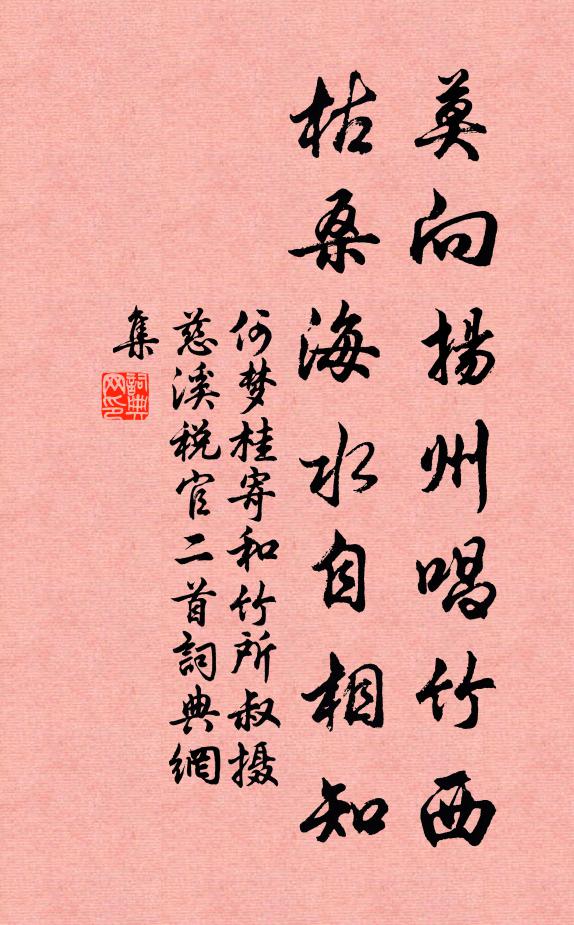 莫向揚州唱竹西
枯桑海水自相知
何梦桂寄和竹所叔摄
慈溪税官二首詞典網
集
詞典网印